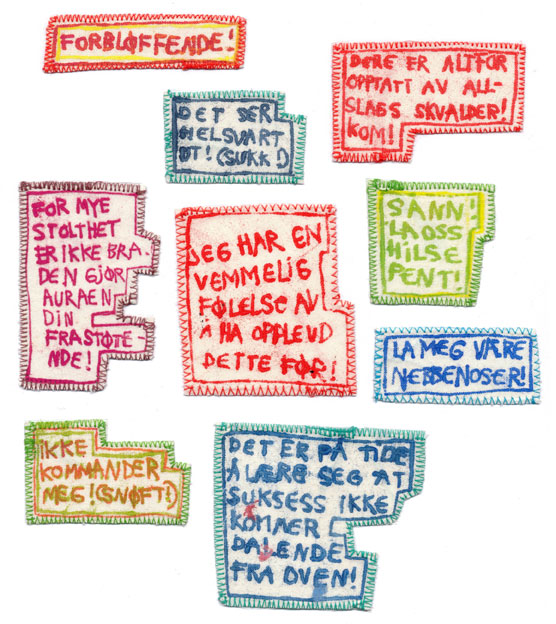 FORBLØFFENDE!
DERE ER ALTFOR
OPPTATT AV ALL-
SLAGS SKVALDER!
KOM!
DET SER
HELSVART
UT! (SUKK!)
FOR MYE
STOLTHET
ER IKKE BRA.
DEN GJØR
AURAEN
DIN
FRASTØTE-
NDE!
JEG HAR EN
VEMMELIG
FØLELSE AV
Å HA OPPLEVD
DETTE FØR!
SÅNN!
LA OSS
HILSE
PENT!
LA MEG VÆRE
NEBBENOSER!
IKKE
KOMMANDER
MEG! (SNØFT!)
DET ER PÅ TIDE
Å LÆRE SEG AT
SUKSESS IKKE
KOMMER
DALENDE
FRA OVEN!